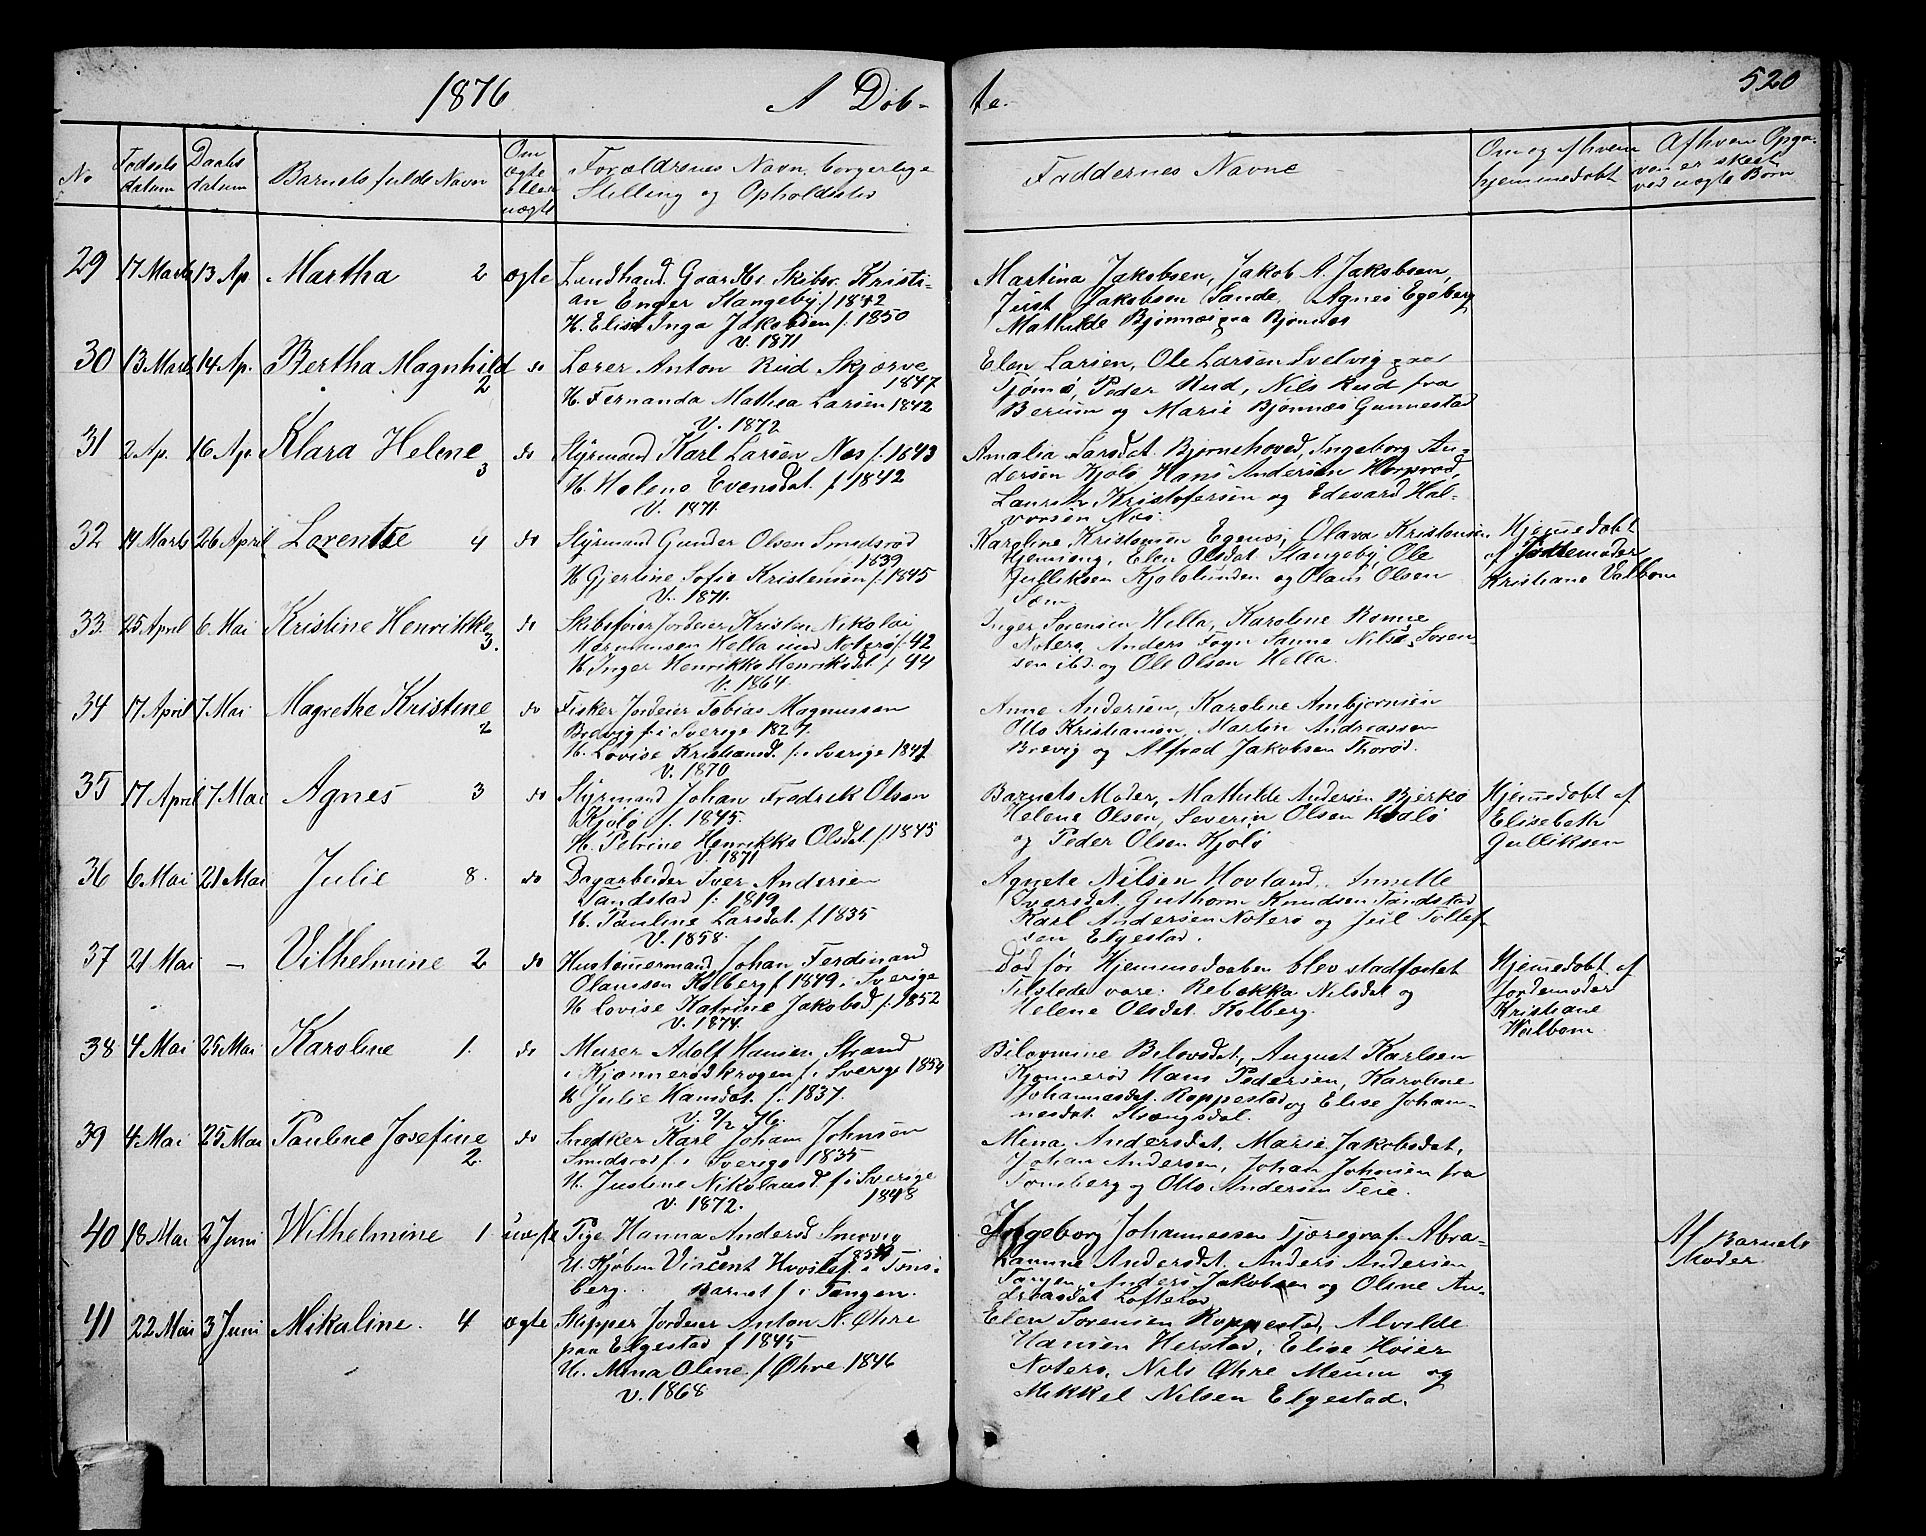 1876
A Døb-
te.
520
No
Fødsels datum
Daabs datum
Barnets fulde Navn
Om ægte eller uægte
Forældrenes Navn, borgerlige Stilling og Opholdssted
Faddernes Navne
Om og af hvem hjemmedøbt
Af hvem Opgaven er skeet ved uægte Børn
29 17 Marts 13 Ap Martha 2 ægte
Kristi-
an Enger Stangeby f 1842
H. Elise Inga Jakobsen f. 1850
V. 1871
Martina Jakobsen, Jakob A. Jakobsen,
Just Jakobsen Sande, Agnes Egeberg
Mathilde Bjønnes paa Bjønnes
30 13 Marts 14 Ap. Bertha Magnhild 2 do
Lærer Anton Rud Skjerve
1847
H. Fernanda Mathea Larsen 1842
V. 1872
Elen Larsen, Ole Larsen Svelvig paa
Tjømø, Peder Rud, Nils Rud fra
Berum og Marie Bjønnes Gunnestad
31 2 Ap. 16 Ap. Klara Helene 3 do
Styrmand Karl Larsen Næs f. 1843
H. Helene Evensdat. f 1842
V. 1871.
Amalia Larsdat. Bjørnehoved, Ingeborg An-
dersen Kjølø Hans Andersen
Kristofersen og Edevard Hal-
vorsen Næs.
32 14 Marts 26 April Lorentze 4 do
Styrmand Gunder Olsen Smidsrød
1839
H Gjertine Sofie Kristensen f. 1845
V. 1871.
Karoline Kristensen Egenes, Olava Kristensen
Hjemseng, Elen Olsdat Stangeby, Ole
Gulliksen Kjølolunden og Olaus Olsen
Sæm.
Hjemmedøbt
af Jordemoder
Kristiane Valbom
33. 25 April 6. Mai Kristine Henrikke 3. do
Skibsfører Jordeier Kristen Nikolai
Hermansen Hella ind Nøterø f. 42
H. Inger Henrikke Henriksdat. f 44
V. 1864.
Inger Sørensen Hella, Karoline Rønne
Nøterø, Anders Fogn Sanne Nils Søren-
sen ibd. og Ole Olsen Hella.
34 17 April 7 Mai Magrethe Kristine 2 do
Fisker Jordeier Tobias Magnussen
f i Sverige 1827.
H. Lovise Kristiansd. f. i Sverige 1841
V. 1870
Anne Andersen, Karoline Ambjørnsen
Otto Kristiansen, Martin Andreassen
Brevig og Alfred Jakobsen Thorød.
35 17 April 7 Mai Agnes 3 do
Styrmand Johan Fredrik Olsen
Kjølø f. 1845.
H. Petrine Henrikke Olsdat. f 1845
V. 1871
Barnets Moder, Mathilde Andersen Bjerkø
Helene Olsen, Severin Olsen Kjølø
og Peder Olsen Kjølø
Hjemmedøbt af
Elisebeth
Gulliksen
36 6 Mai 21 Mai Julie 8. do
Dagarbeider Iver Andersen
Tandstad f: 1819
H. Pauline Larsdat. f 1835
V. 1858.
Agnete Nilsen Hovland, Annette
Iversdat, Guthorm Knudsen Tandstad
Karl Andersen Nøterø og Juil Tollef-
sen Elgestad.
37 21 Mai — Vilhelmine 2 do
Hustømmermand Johan Ferdinand
Olaussen Kolberg f 1849 i Sverige
H Lovise Katrine Jakobsd f. 1852
V. 1874.
Død før Hjemmedaaben blev stadfæstet
Tilstede vare: Rebekka Nilsdat og
Helene Olsdat. Kolberg.
Hjemmedøbt af
Jordemoder
Kristiane
Walbom.
38 4 Mai 25 Mai Karoline 1. do
Murer Adolf Hansen Strand
i Kjønnerødkrogen f. i Sverige 1854
H Julie Hansdat f. 1837.
V. 9/2 76.
Bilovmine Bilovsdat, August Karlsen
Kjønnerød Hans Pedersen, Karoline
Johannesdat. Roppestad og Elise Johan-
nesdat. Strængsdal.
39 4 Mai 25 Mai Pauline Josefine 2. do
Snedker Karl Johan Johnsen
Smidsrød f. i Sverige 1835
H. Justine Nikolausd f i Sverige
1848
V. 1872.
Mina Andersdat, Marie Jakobsdat,
Johan Andersen, Johan Johnsen fra
Tønsberg og Otto Andersen Teie.
40 18 Mai 2 Juni Wilhelmine 1 uægte
Pige Hanna Andersd Smørvig
U. Kjøbm Vincent i Tøns-
berg. Barnet f i Tangen.
Ingeborg Johannessen Tjæregraf. Abra-
hamine Andersdt. Anders Andersen
Tangen, Anders Jakobsen og Oline An-
dreasdat Lofterød
Af Barnets
Moder.
41 22 Mai 3 Juni Mikaline. 4 ægte
Skipper Jordeier Anton N. Øhre
paa Elgestad f 1845
H. Mina Oline f Øhre 1846
V. 1868
Elen Sørensen Roppestad, Alvilde
Hansen Herstad, Elise Høier
Nøterø, Nils Øhre Meum og
Mikkel Nilsen Elgestad.